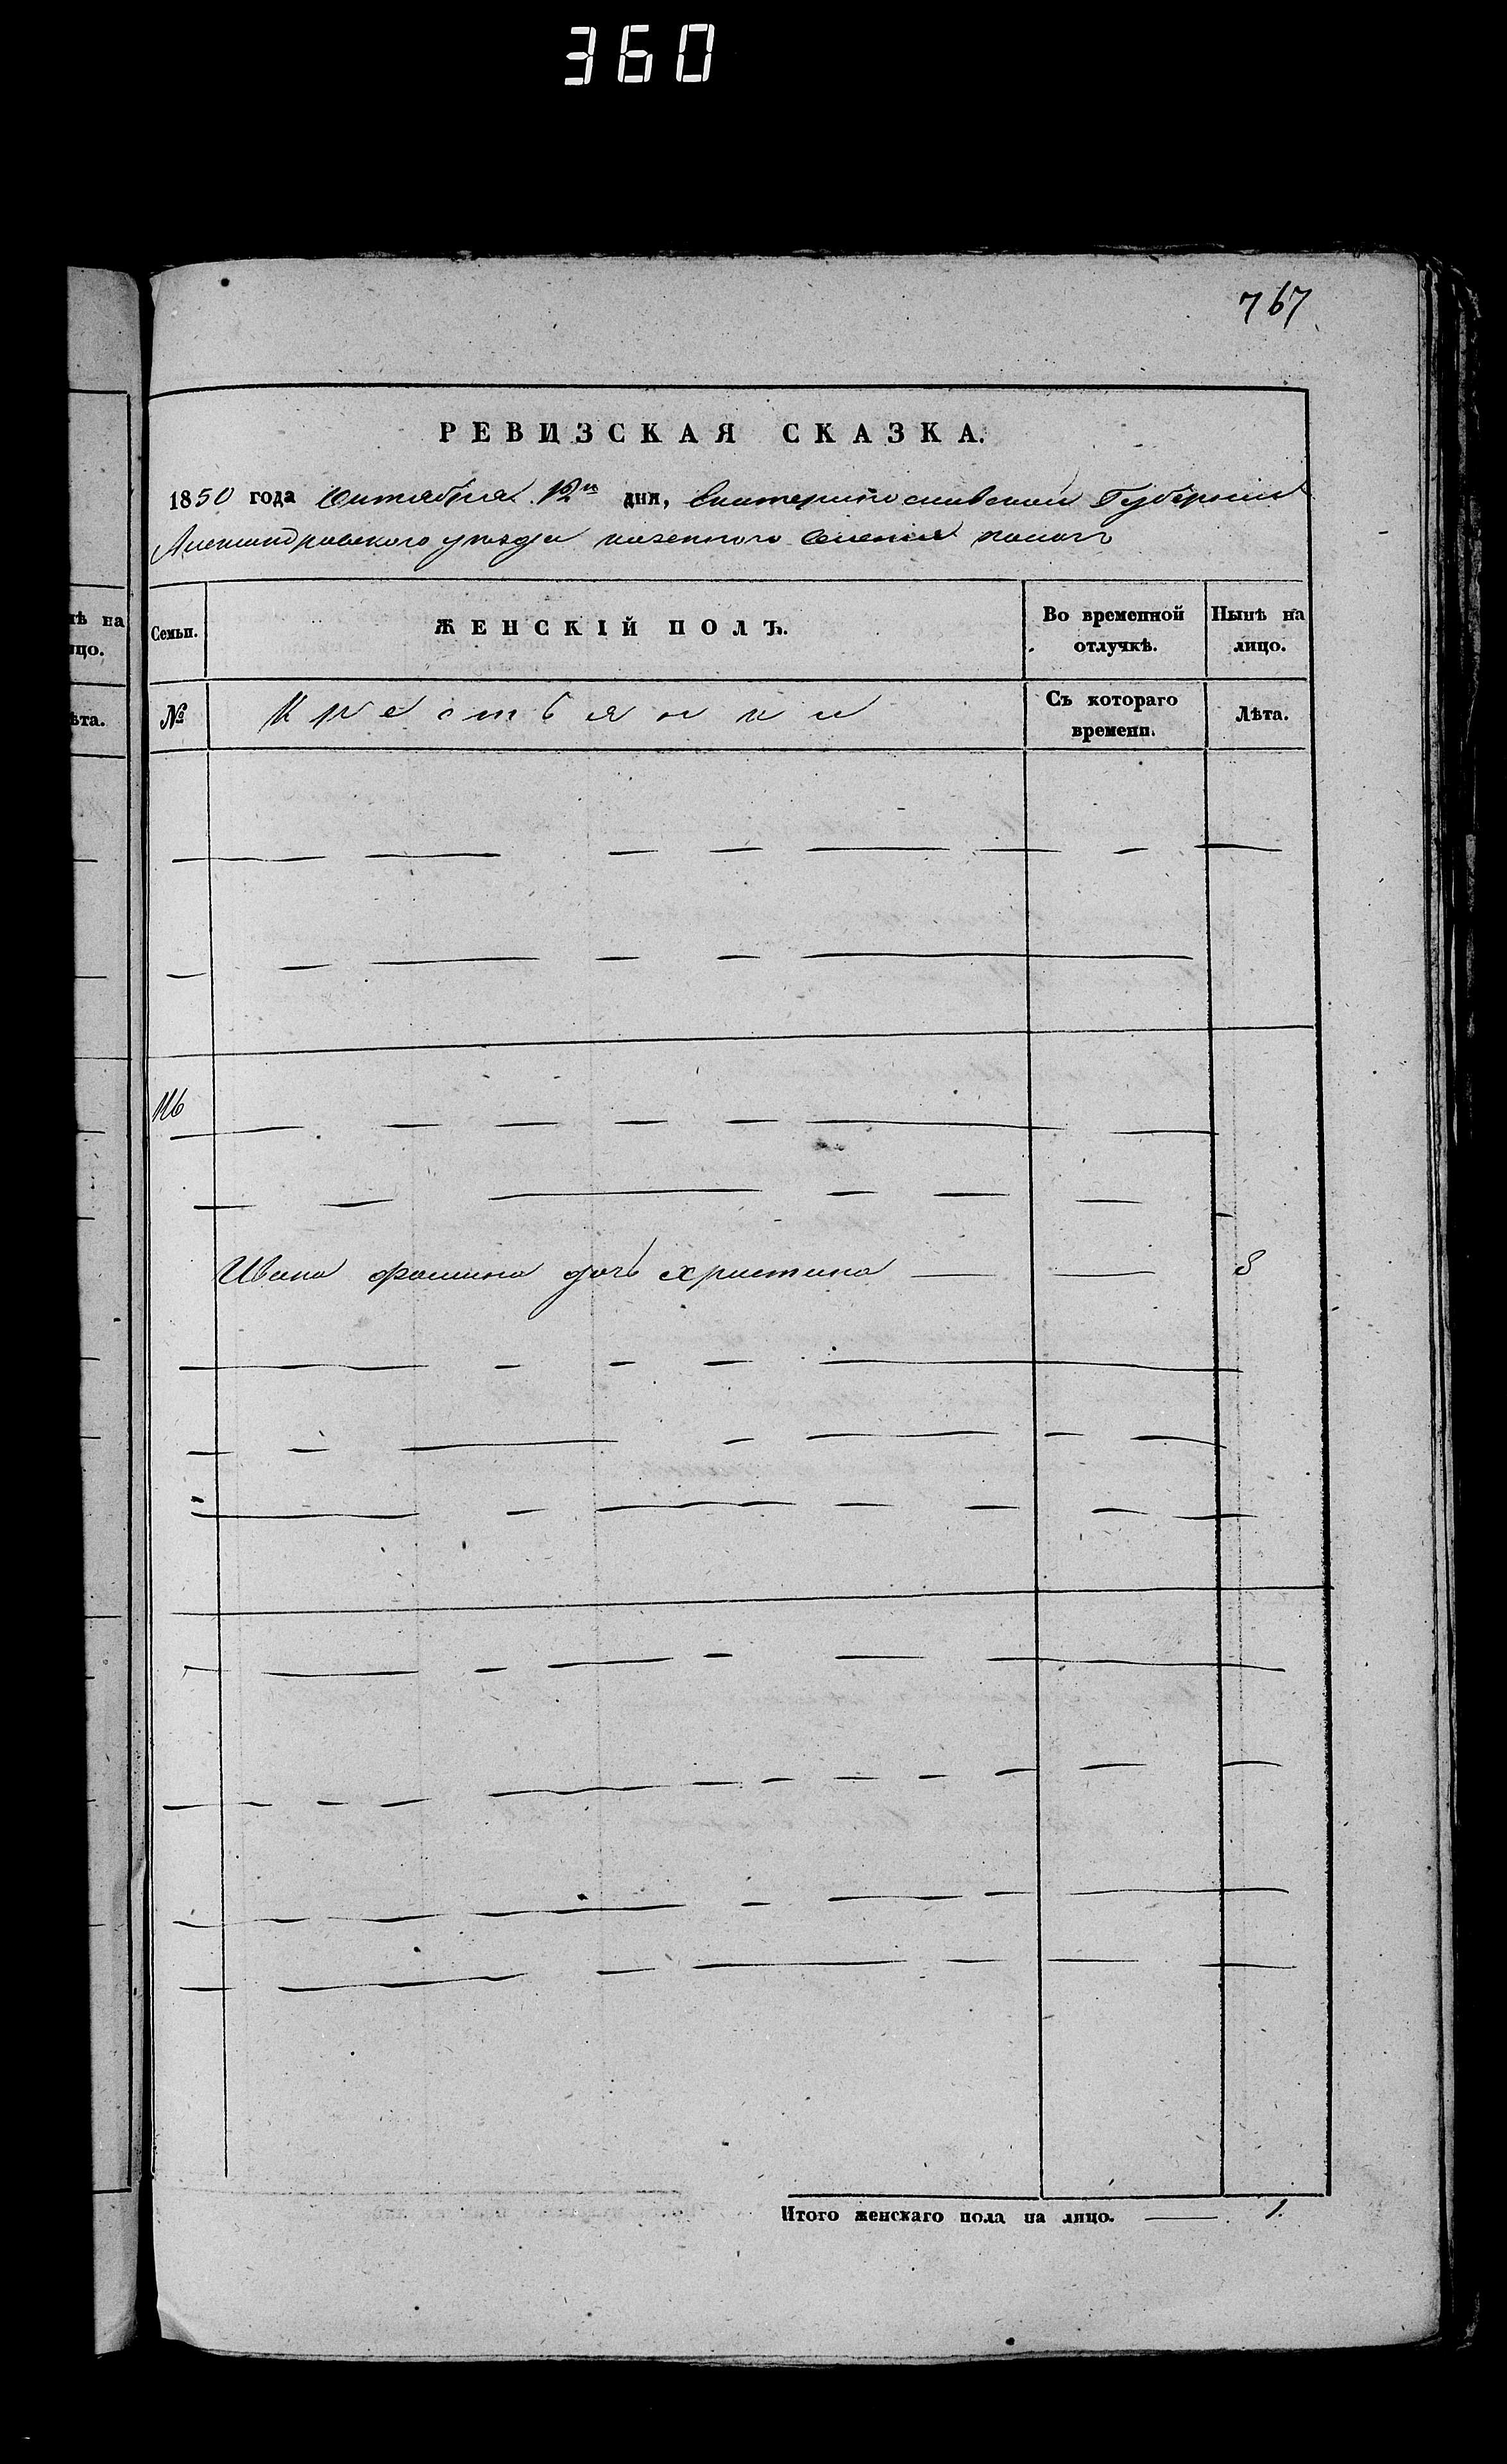 360
767
РЕВИЗСКАЯ СКАЗКА.
1850 года Октября 12го дня, Екатеринославской Губернии
Александровского уезда казенного Селения
Семьи.
ЖЕНСКІЙ ПОЛЪ.
Во временной
отлучкѣ.
Нынѣ на
лицо.
№
Крестьянки
Съ котораго
времени.
Лѣта.
116
Ивана Фомина дочь Христина
8
Итого женскаго пола на лицо.
1.
нѣ на
ицо.
ѣта.